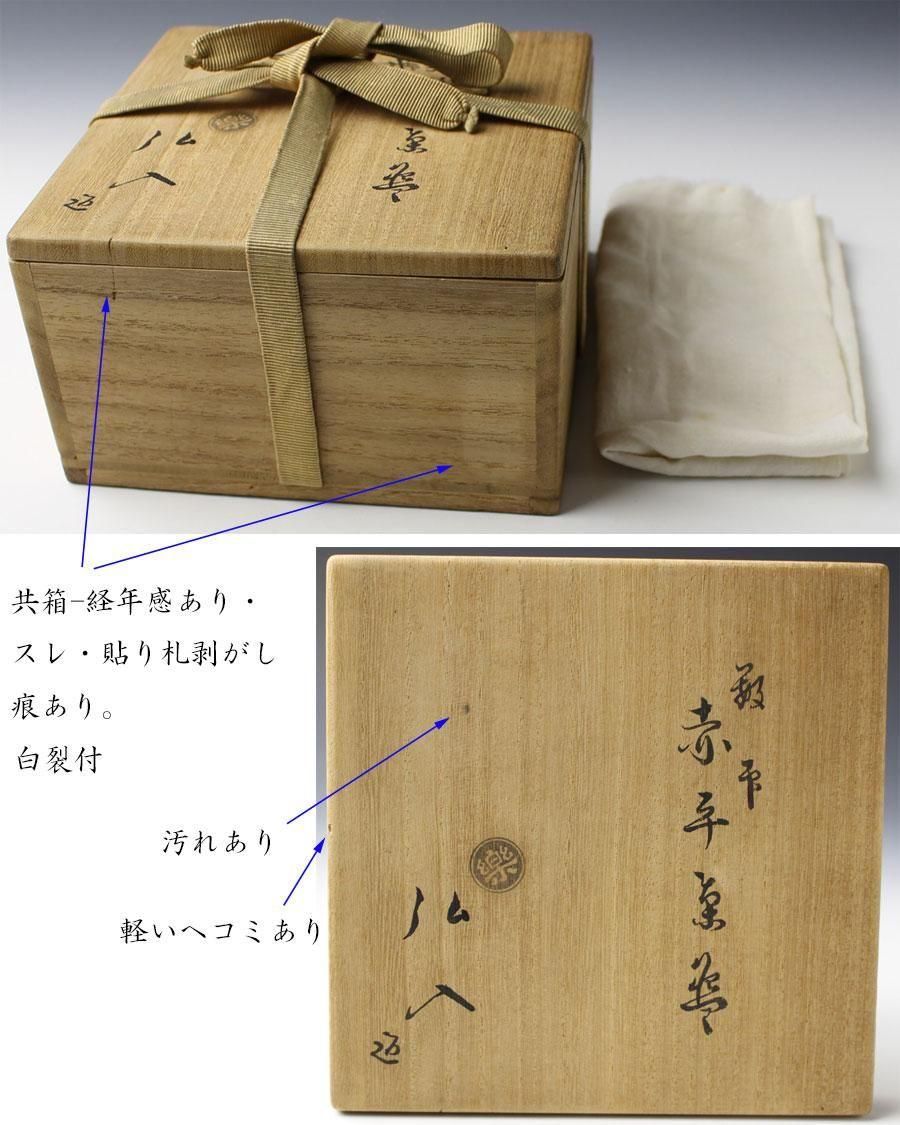 弘入
造
共箱-経年感あり・
スレ・貼り札剥がし
痕あり。
白裂付
汚れあり
軽いヘコミあり
赤平茶碗
印
樂
弘入
造